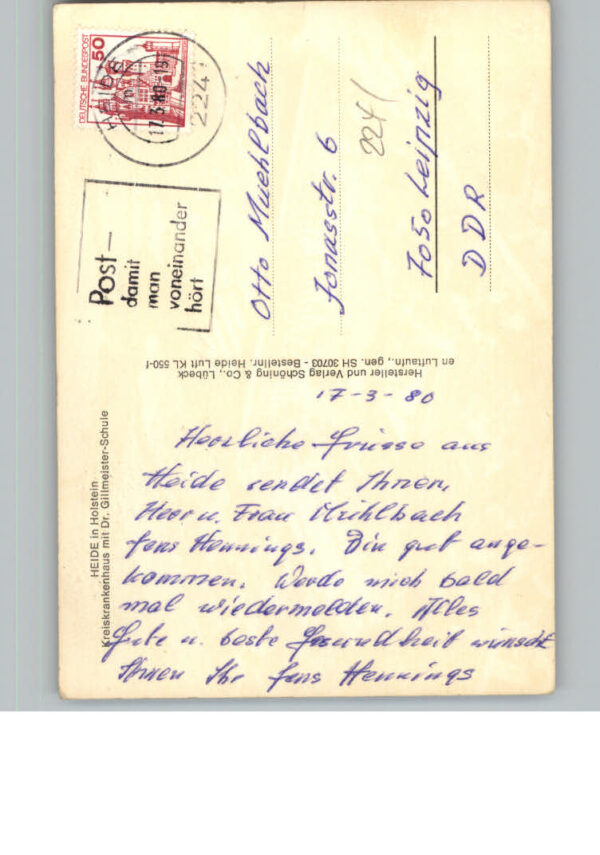 DEUTSCHE BUNDESPOST
50
HEIDE
17.3.80-19
2241
Post –
damit
man
voneinander
hört
Otto Muehlbach
Jonasstr. 6
2241
7050 Leipzig
DDR
Hersteller und Verlag Schöning & Co., Lübeck
en Luftaufn., gen. SH 30703 - Bestellnr. Heide Luft KL 550-f
HEIDE in Holstein
Kreiskrankenhaus mit Dr. Gillmeister-Schule
17-3-80
Herzliche Grüsse aus
Heide sendet Ihnen,
Herr u. Frau Mühlbach
Jens Hennings. Bin gut ange-
kommen. Werde mich bald
mal wiedermelden. Alles
Gute u. beste Gesundheit wünscht
Ihnen Ihr Jens Hennings